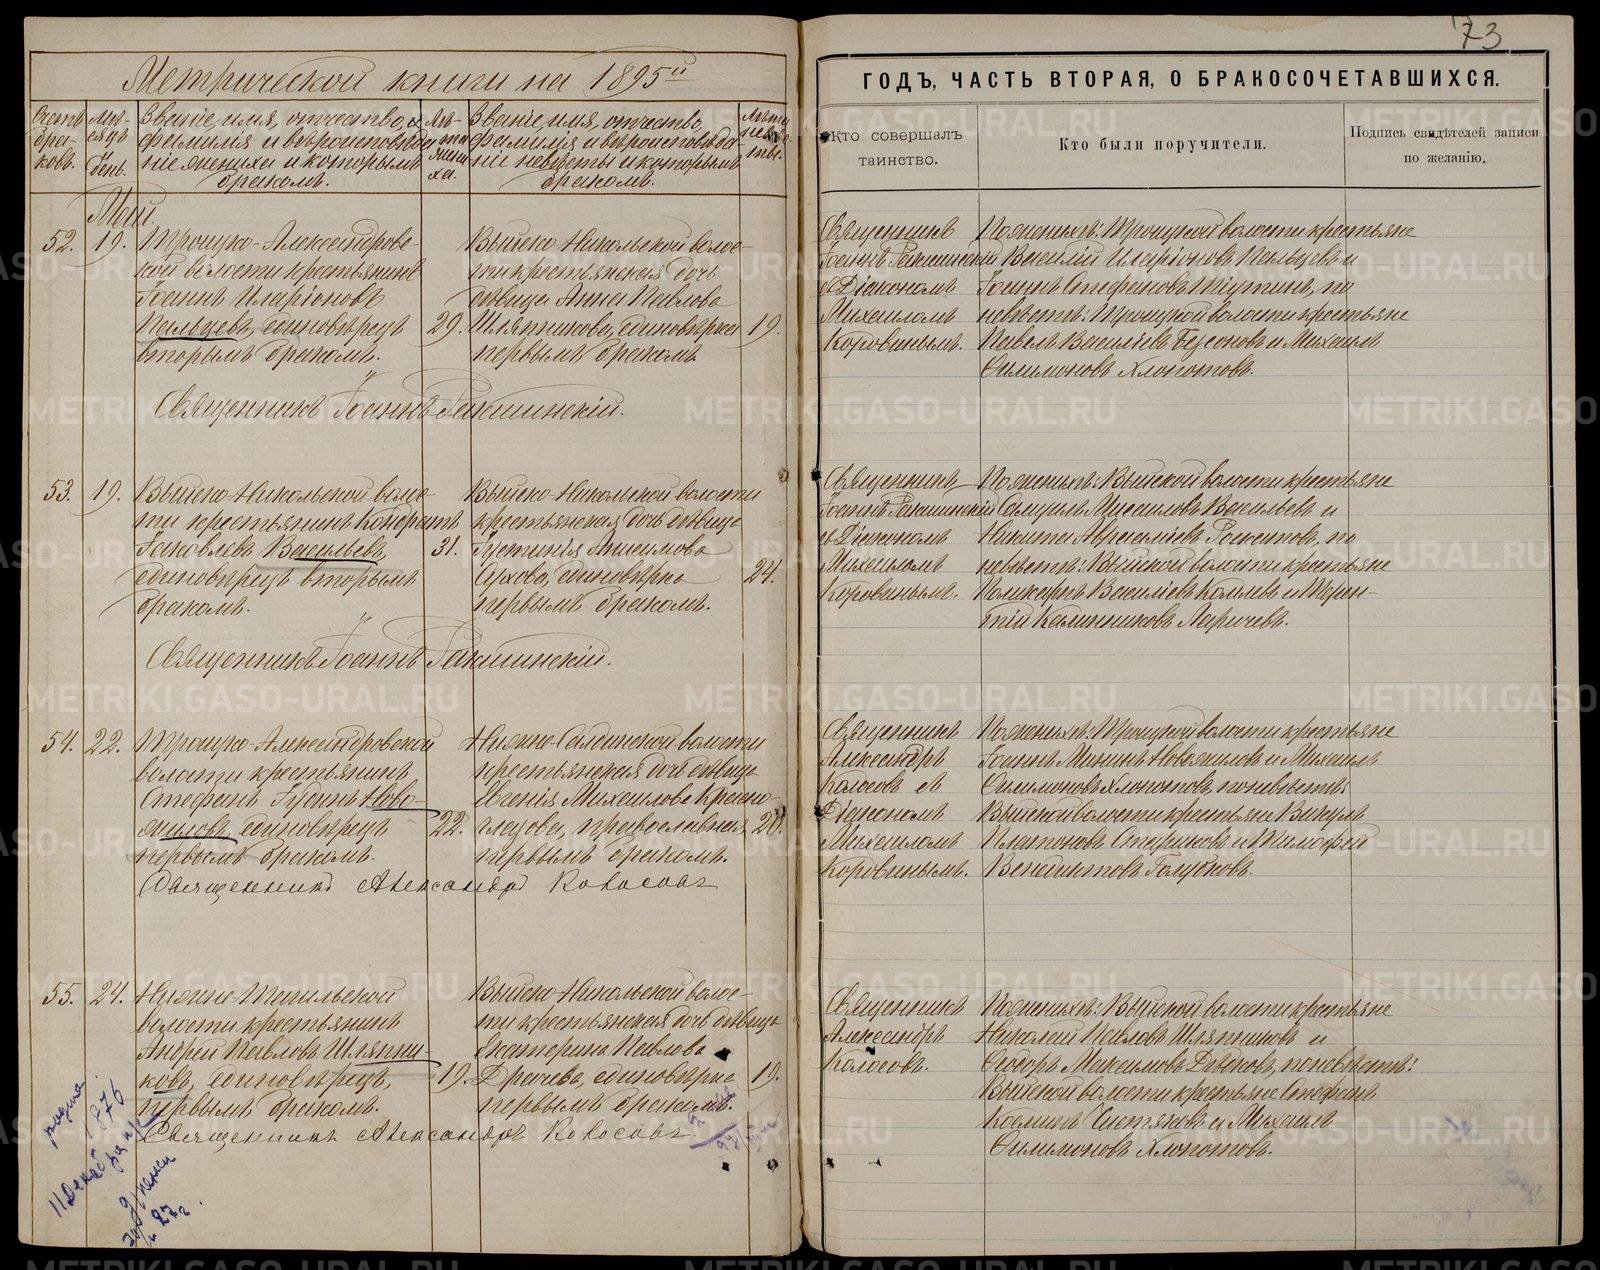 73
Метрической книги на 1895й
ГОДЪ, ЧАСТЬ ВТОРАЯ, О БРАКОСОЧЕТАВШИХСЯ.
Счетъ браковъ.
Мѣсяцъ День.
Званіе, имя, отчество, фамилія и вѣроисповѣданіе жениха и которымъ бракомъ.
Лѣта жениха.
Званіе, имя, отчество, фамилія и вѣроисповѣданіе невѣсты и которымъ бракомъ.
Лѣта невѣсты.
Кто совершалъ
таинство.
Кто были поручители.
Подпись свидѣтелей записи
по желанію.
Май.
52. 19.
Троицко-Александровс-
кой волости крестьянинъ
Іоаннъ Иларіоновъ
Пальцевъ, единовѣрецъ 29.
вторымъ бракомъ.
Выйско-Никольской волос-
ти крестьянская дочь
дѣвица Анна Павлова
Шляпникова, единовѣрка 19.
первымъ бракомъ
Священникъ Іоаннъ Ракшинскій.
Священникъ
Іоаннъ Ракшинскій
съ Діакономъ
Михаиломъ
Коровинымъ.
По женихѣ: Троицкой волости крестьяне
Василій Иларіоновъ Пальцевъ и
Іоаннъ Стефановъ по
невѣстѣ: Троицкой волости крестьяне
Павелъ Василіевъ Безсоновъ и Михаилъ
Филимоновъ Хлопотовъ.
53. 19.
Выйско-Никольской волос-
ти крестьянинъ Кондратъ
Іаковлевъ Васильевъ, 31.
единовѣрецъ вторымъ
бракомъ.
Выйско-Никольской волости
крестьянская дочь дѣвица
Іустинія Анисимова
единовѣрка 24.
первымъ бракомъ.
Священникъ Іоаннъ Ракшинскій.
Священникъ
Іоаннъ Ракшинскій
съ Діакономъ
Михаиломъ
Коровинымъ.
По женихѣ: Выйской волости крестьяне
Самуилъ Михаиловъ Васильевъ и
Никита по
невѣстѣ: Выйской волости крестьяне
Поликарпъ Василіевъ и Терен-
тій Калинниковъ Ларичевъ.
54. 22.
Троицко-Александровской
волости крестьянинъ
Стефанъ Гудинъ Ново-
жиловъ, единовѣрецъ 22.
первымъ бракомъ.
Нижне-Салдинской волости
крестьянская дочь дѣвица
Ксенія Михаилова Красно-
глазова, православная 20.
первымъ бракомъ.
Священникъ Александръ Колосовъ
Священникъ
Александръ
Колосовъ съ
Діакономъ
Михаиломъ
Коровинымъ.
По женихѣ: Троицкой волости крестьяне
Іоаннъ Мининъ Новожиловъ и Михаилъ
Филимоновъ Хлопотовъ, по невѣстѣ:
Выйской волости крестьяне Викулъ
Платоновъ Стариковъ и Тимофей
Венедиктовъ Голубковъ.
55. 24.
Нижне-Тагильской
волости крестьянинъ
Андрей Павловъ Шляпни-
ковъ, единовѣрецъ, 19.
первымъ бракомъ.
Выйско-Никольской волос-
ти крестьянская дочь дѣвица
Екатерина Павлова
единовѣрка 19.
первымъ бракомъ.
Священникъ Александръ Колосовъ.
Священникъ
Александръ
Колосовъ.
По женихѣ: Выйской волости крестьяне
Николай Павловъ Шляпниковъ и
Ѳеодоръ Максимовъ Дѣдковъ, по невѣстѣ:
Выйской волости крестьяне Стефанъ
Козминъ Чистяковъ и Михаилъ
Филимоновъ Хлопотовъ.
1876
11 Декабря
27 г.
METRIKI.GASO-URAL.RU